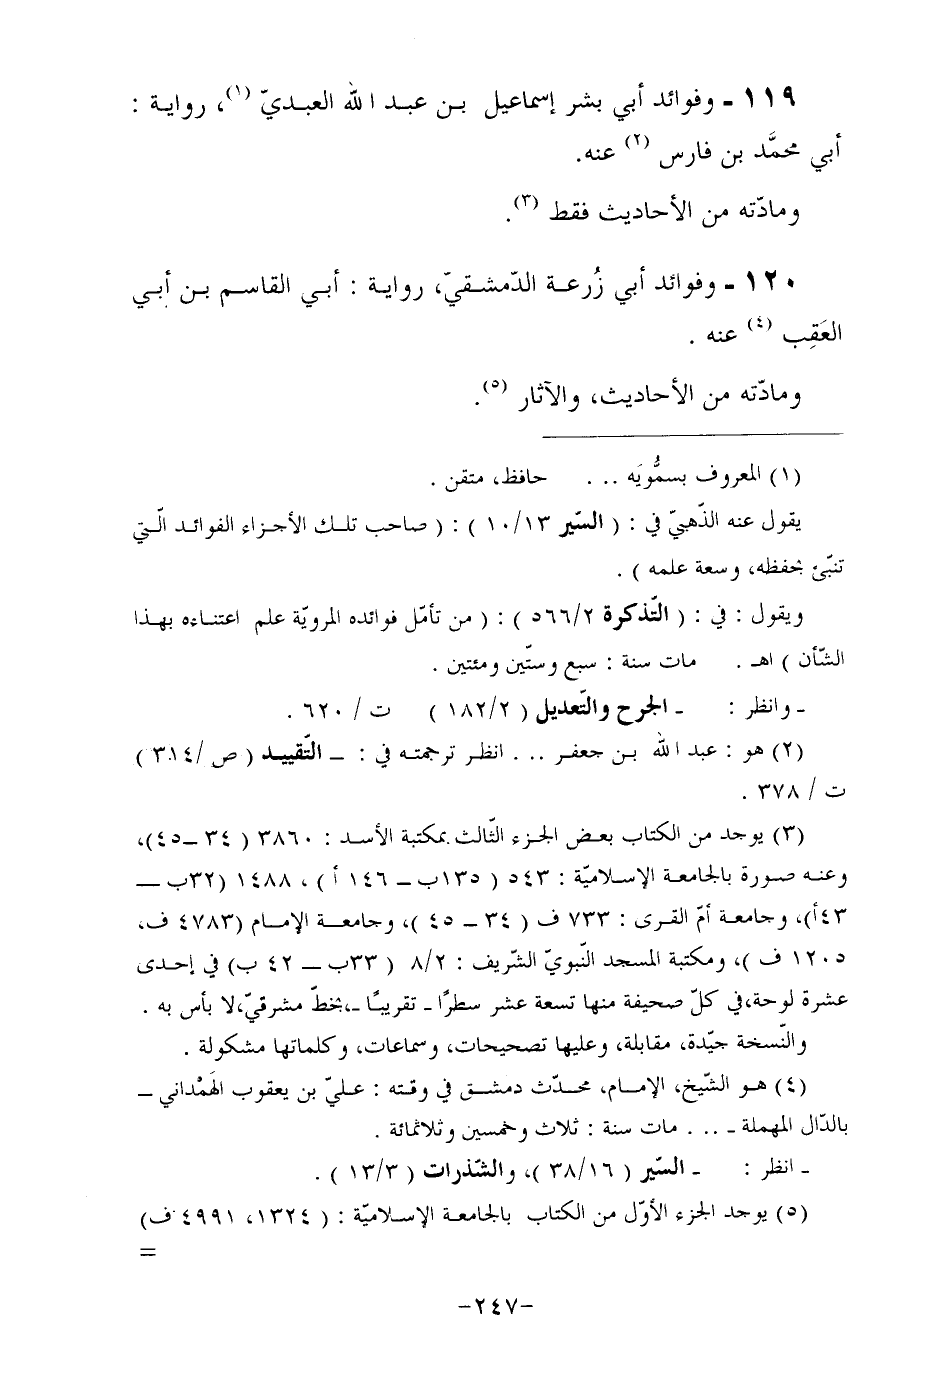 ١١٩ - وفوائد أبي بشر إسماعيل بن عبد الله العبديّ (١)، رواية :
أبي محمَّد بن فارس (٢) عنه.
ومادّته من الأحاديث فقط (٣).
١٢٠ - وفوائد أبي زُرعة الدّمشقيّ، رواية : أبي القاسم بن أبي
العَقِب (٤) عنه .
ومادّته من الأحاديث، والآثار (٥).
(١) المعروف بسمُّويَه ... حافظ، متقن .
يقول عنه الذّهبيّ في : ( السّير ١٠/١٣ ) : ( صاحب تلك الأجزاء الفوائد الّتي
تنبّئ بحفظه، وسعة علمه ) .
ويقول : في : ( التّذكرة ٥٦٦/٢ ) : ( من تأمّل فوائده المرويّة علم اعتناءه بهذا
الشّأن ) اهـ . مات سنة : سبع وستّين ومئتين .
- وانظر : - الجرح والتّعديل ( ١٨٢/٢ ) ت / ٦٢٠ .
(٢) هو : عبد الله بن جعفر ... انظر ترجمته في : - التّقييد ( ص /٣١٤ )
ت / ٣٧٨ .
(٣) يوجد من الكتاب بعض الجزء الثّالث بمكتبة الأسد : ٣٨٦٠ ( ٣٤ -٤٥)،
وعنه صورة بالجامعة الإسلاميّة : ٥٤٣ ( ١٣٥ب - ١٤٦ أ ) ، ١٤٨٨ (٣٢ب -
٤٣أ)، وجامعة أمّ القرى : ٧٣٣ ف ( ٣٤ - ٤٥ )، وجامعة الإمام (٤٧٨٣ ف،
١٢٠٥ ف )، ومكتبة المسجد النّبويّ الشّريف : ٨/٢ ( ٣٣ب - ٤٢ ب) في إحدى
عشرة لوحة،في كلّ صحيفة منها تسعة عشر سطرًا - تقريبًا -،بخطّ مشرقيّ،لا بأس به .
والنّسخة جيّدة، مقابلة، وعليها تصحيحات، وسماعات، وكلماتها مشكولة .
(٤) هو الشّيخ، الإمام، محدّث دمشق في وقته : عليّ بن يعقوب الهَمْداني -
بالدّال المهملة - ... مات سنة : ثلاث وخمسين وثلاثمائة .
- انظر : - السّير ( ٣٨/١٦ )، والشّذرات ( ١٣/٣ ) .
(٥) يوجد الجزء الأوّل من الكتاب بالجامعة الإسلاميّة : ( ١٣٢٤، ٤٩٩١ ف)
=
-٢٤٧-